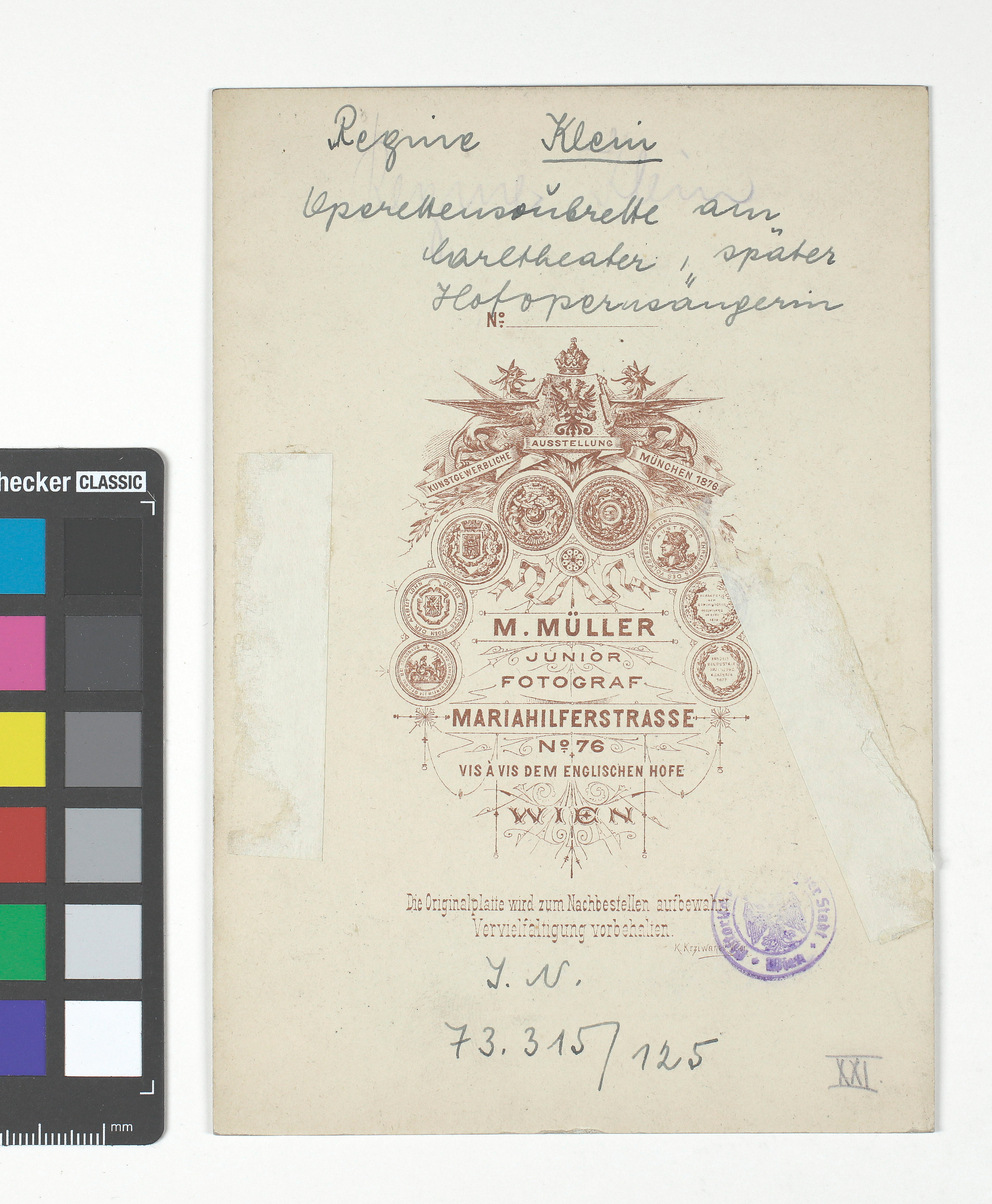 Regine Klein
Operettensoubrette am
Carltheater, später
Hofopernsängerin
Nº
AUSSTELLUNG
KUNSTGEWERBLICHE MÜNCHEN 1876
M. MÜLLER
JUNIOR
FOTOGRAF
MARIAHILFERSTRASSE
Nº 76
VIS À VIS DEM ENGLISCHEN HOFE
WIEN
Die Originalplatte wird zum Nachbestellen aufbewahrt
Vervielfältigung vorbehalten.
der Stadt
Wien
J. N.
73.315/125
XXI
hecker CLASSIC
mm